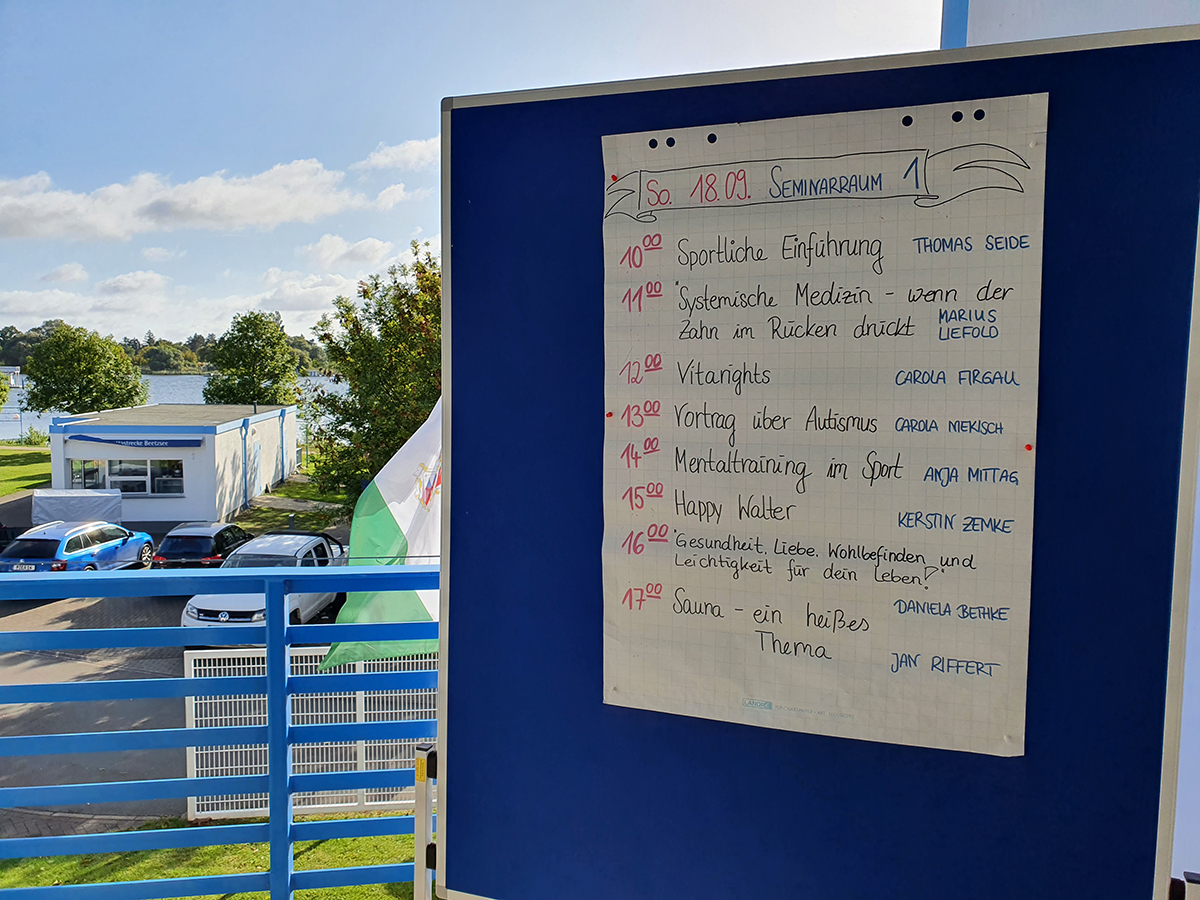 So. 18.09. SEMINARRAUM 1
10⁰⁰ Sportliche Einführung THOMAS SEIDE
11⁰⁰ "Systemische Medizin - wenn der
Zahn im Rücken drückt MARIUS
LIEFOLD
12⁰⁰ Vitarights CAROLA FIRGAU
13⁰⁰ Vortrag über Autismus CAROLA NIEKISCH
14⁰⁰ Mentaltraining im Sport ANJA MITTAG
15⁰⁰ Happy Walter KERSTIN ZEMKE
16⁰⁰ "Gesundheit, Liebe, Wohlbefinden und
Leichtigkeit für dein Leben!"
DANIELA BETHKE
17⁰⁰ Sauna - ein heißes
Thema
JAN RIFFERT
Beetzsee